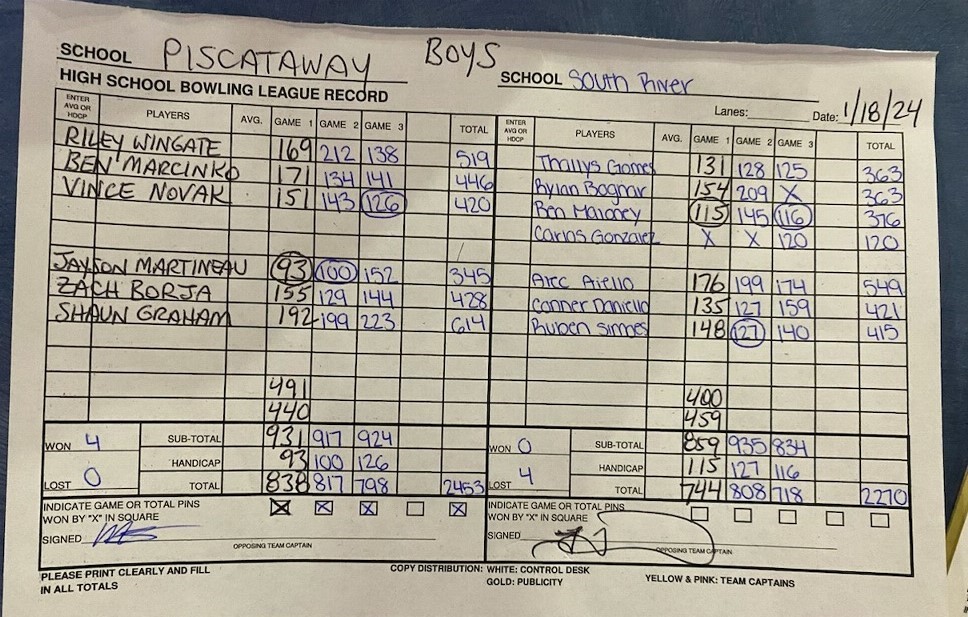 SCHOOL PISCATAWAY BOYS SCHOOL South River
HIGH SCHOOL BOWLING LEAGUE RECORD
Lanes: Date: 1/18/24
ENTER AVG OR HDCP PLAYERS AVG. GAME 1 GAME 2 GAME 3 TOTAL ENTER AVG OR HDCP PLAYERS AVG. GAME 1 GAME 2 GAME 3 TOTAL
RILEY WINGATE 169 212 138 519 Thallys Gomes 131 128 125 363
BEN MARCINKO 171 134 141 446 Rylan Bognar 154 209 X 363
VINCE NOVAK 151 143 126 420 Ben Maloney 115 145 116 376
Carlos Gonzalez X X 120 120
JAYSON MARTINEAU 93 100 152 345 Aiello 176 199 174 549
ZACH BORJA 155 129 144 428 Conner 135 127 159 421
SHAUN GRAHAM 192 199 223 614 Ruben Simoes 148 127 140 415
491 400
440 459
WON 4 SUB-TOTAL 931 917 924 WON 0 SUB-TOTAL 859 935 834
HANDICAP 93 100 126 HANDICAP 115 127 116
LOST 0 TOTAL 838 817 798 2453 LOST 4 TOTAL 744 808 718 2270
INDICATE GAME OR TOTAL PINS X X X X INDICATE GAME OR TOTAL PINS
WON BY "X" IN SQUARE WON BY "X" IN SQUARE
SIGNED SIGNED
OPPOSING TEAM CAPTAIN OPPOSING TEAM CAPTAIN
PLEASE PRINT CLEARLY AND FILL COPY DISTRIBUTION: WHITE: CONTROL DESK YELLOW & PINK: TEAM CAPTAINS
IN ALL TOTALS GOLD: PUBLICITY